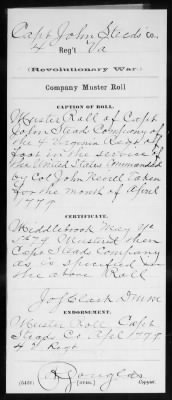 Capt John Steeds Co.
4 Reg't Va
(Revolutionary War.)
Company Muster Roll
CAPTION OF ROLL.
Muster Roll of Capt
John Steads Company of
the 4 Virginia Regt of
foot in the service of
the United States Commanded
by Col John Nevell taken
for the month of April
1779
CERTIFICATE.
Middlebrook May ye
5th 79 Mustered then
Capt Steads Company
as is specified in
the above Roll
Jos Clark D M
ENDORSEMENT.
Muster Role Capt
Steads Co April 1779
4 Regt
Douglas
Copyist.